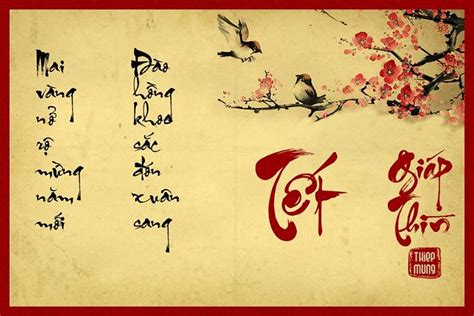 Mai vàng nở rộ mừng năm mới
Đào hồng khoe sắc đón xuân sang
Tết
Giáp
Thìn
THIEP
MUNG